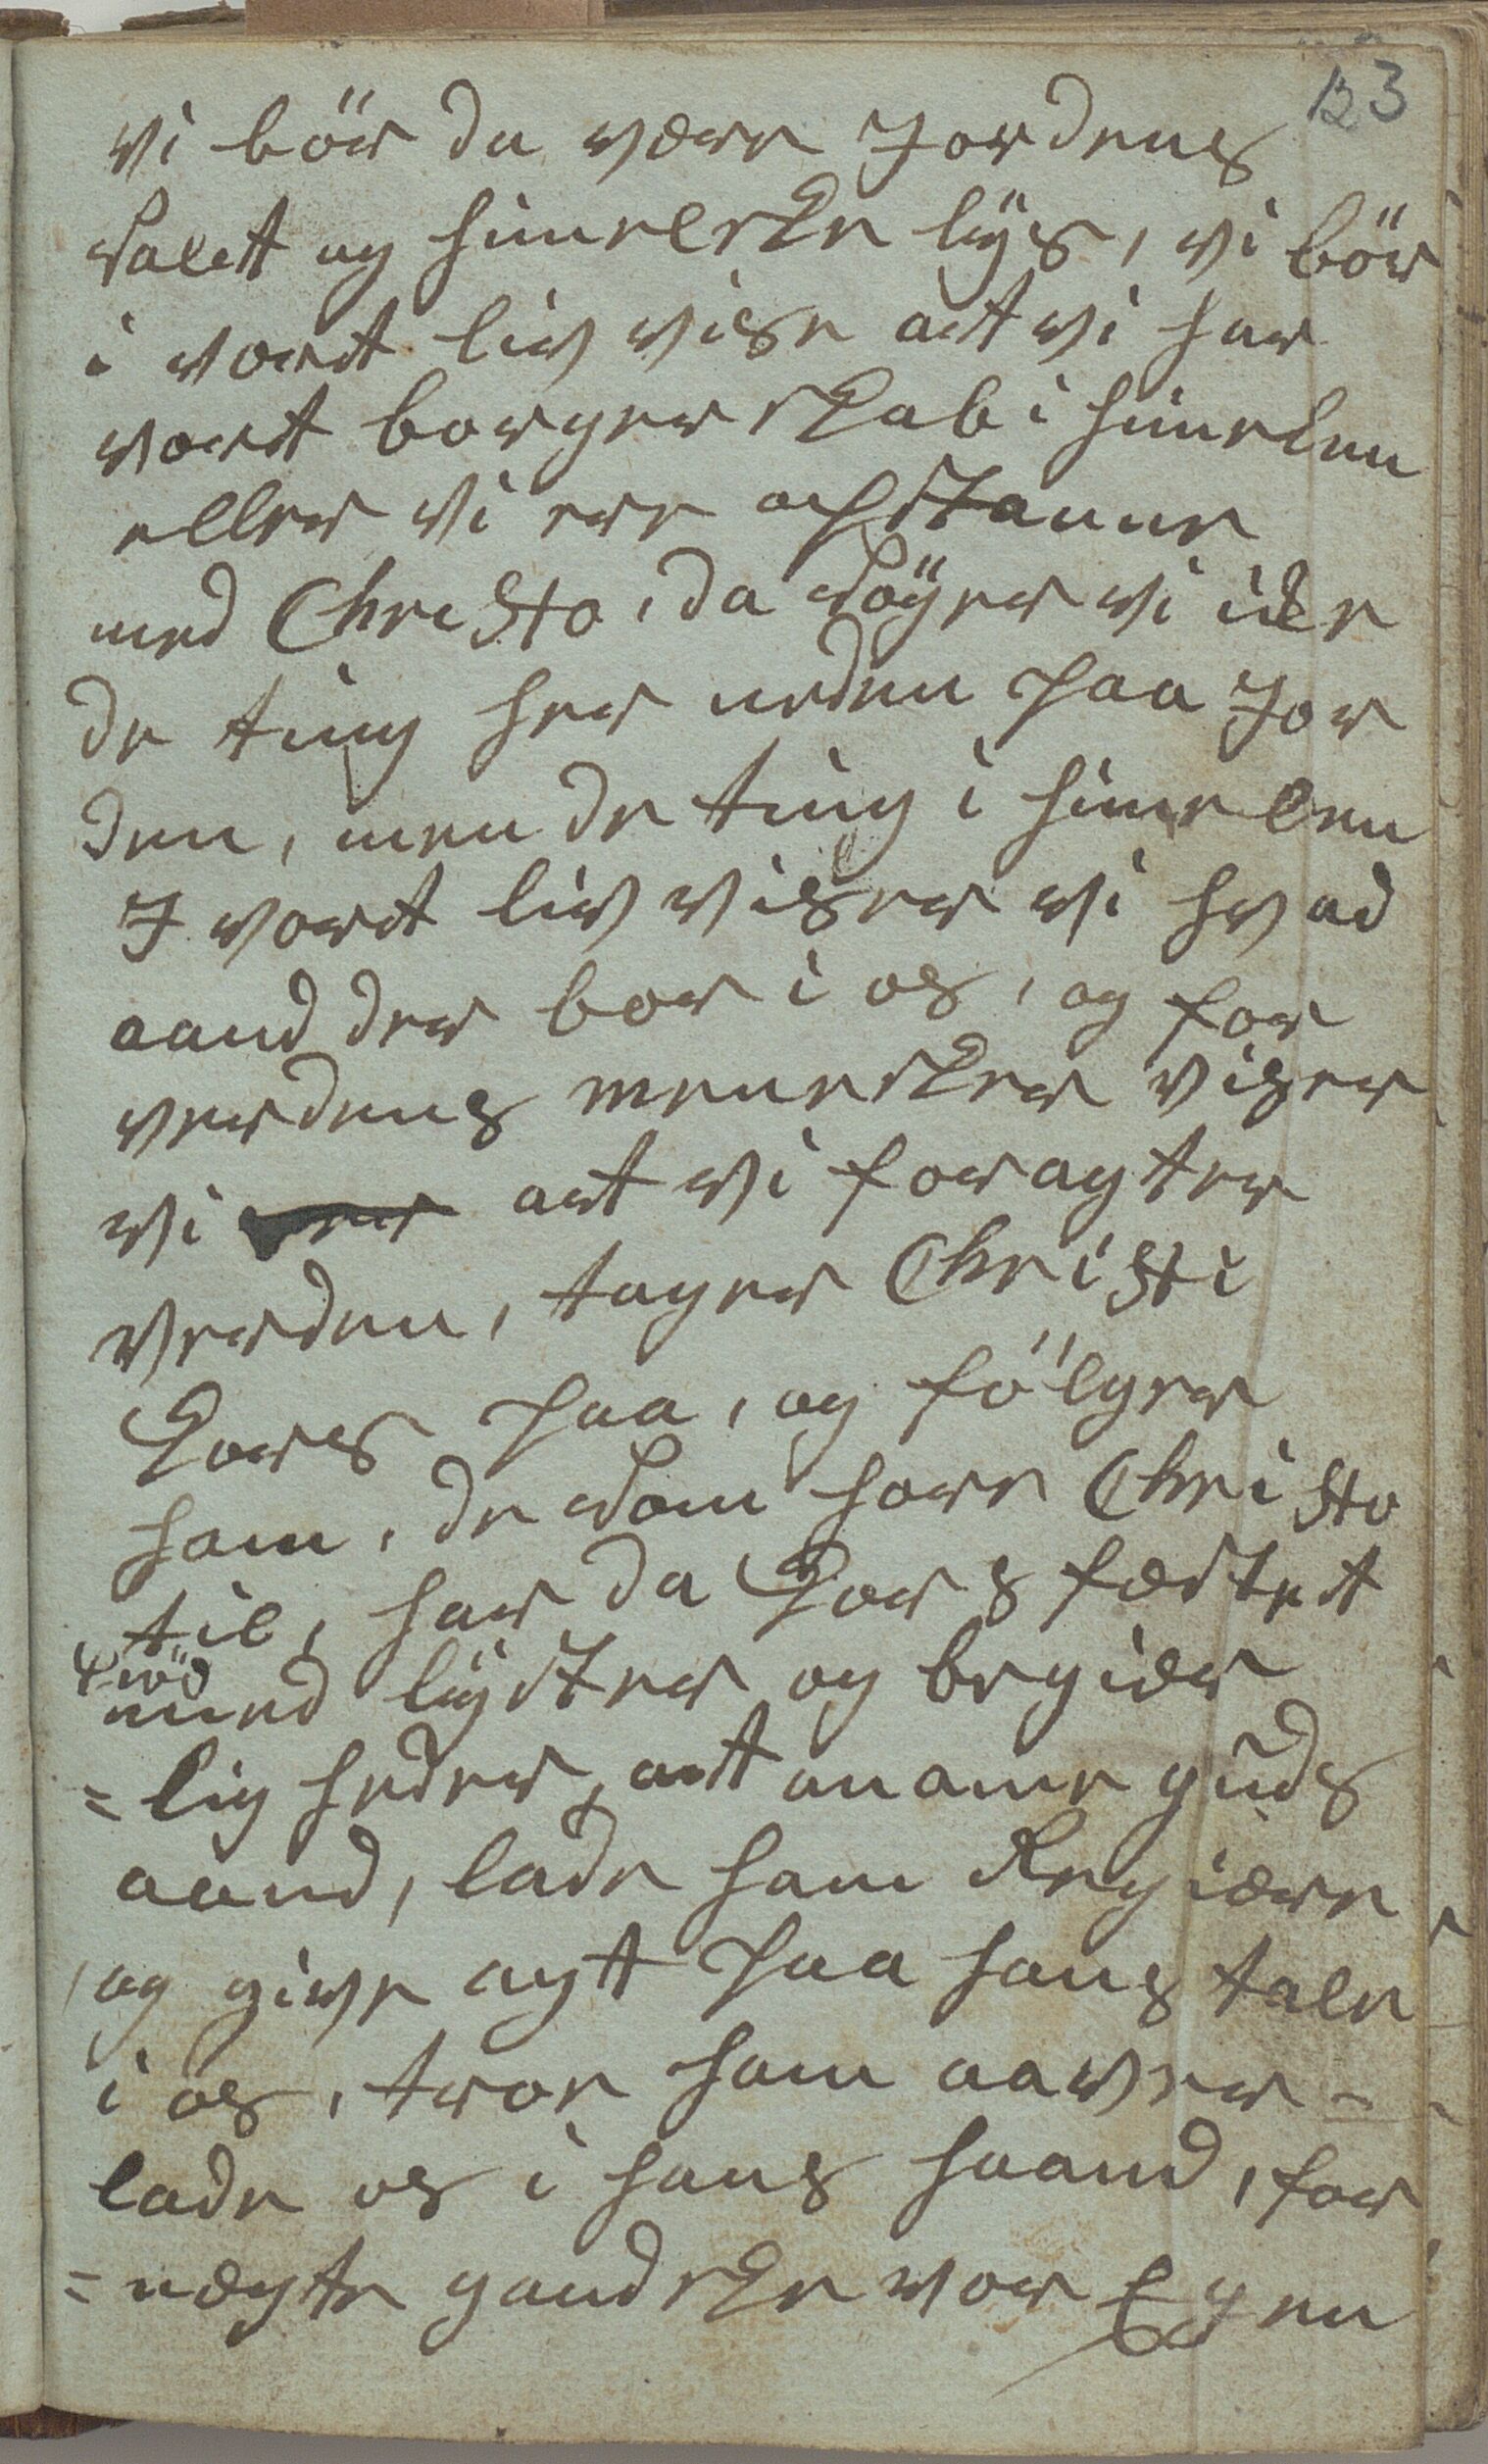 123
vi bör da være Jordens
Salt og himelske lÿs, vi bör
i vort liv vise at vi har
vort borgerskab i himelen
eller vi ere opstanne
med Christo, da Söger vi ike
de ting her neden paa Jor
den, men de ting i himelen
I vort liv viser vi hvad
aand der bor i os, og for
verdens menesker viser
vi at vi foragter
verden, tager Christi
Kors paa, og fölger
ham, de Som höre Christo
til, har da Korsfæstet
kiöd
med lÿster og begiær
=ligheder, at aname guds
aand, lade ham Regiære
og give agt paa hans tale
i os, troe ham aaver=
lade os i hans haand, for
=negte gandske vor Egen